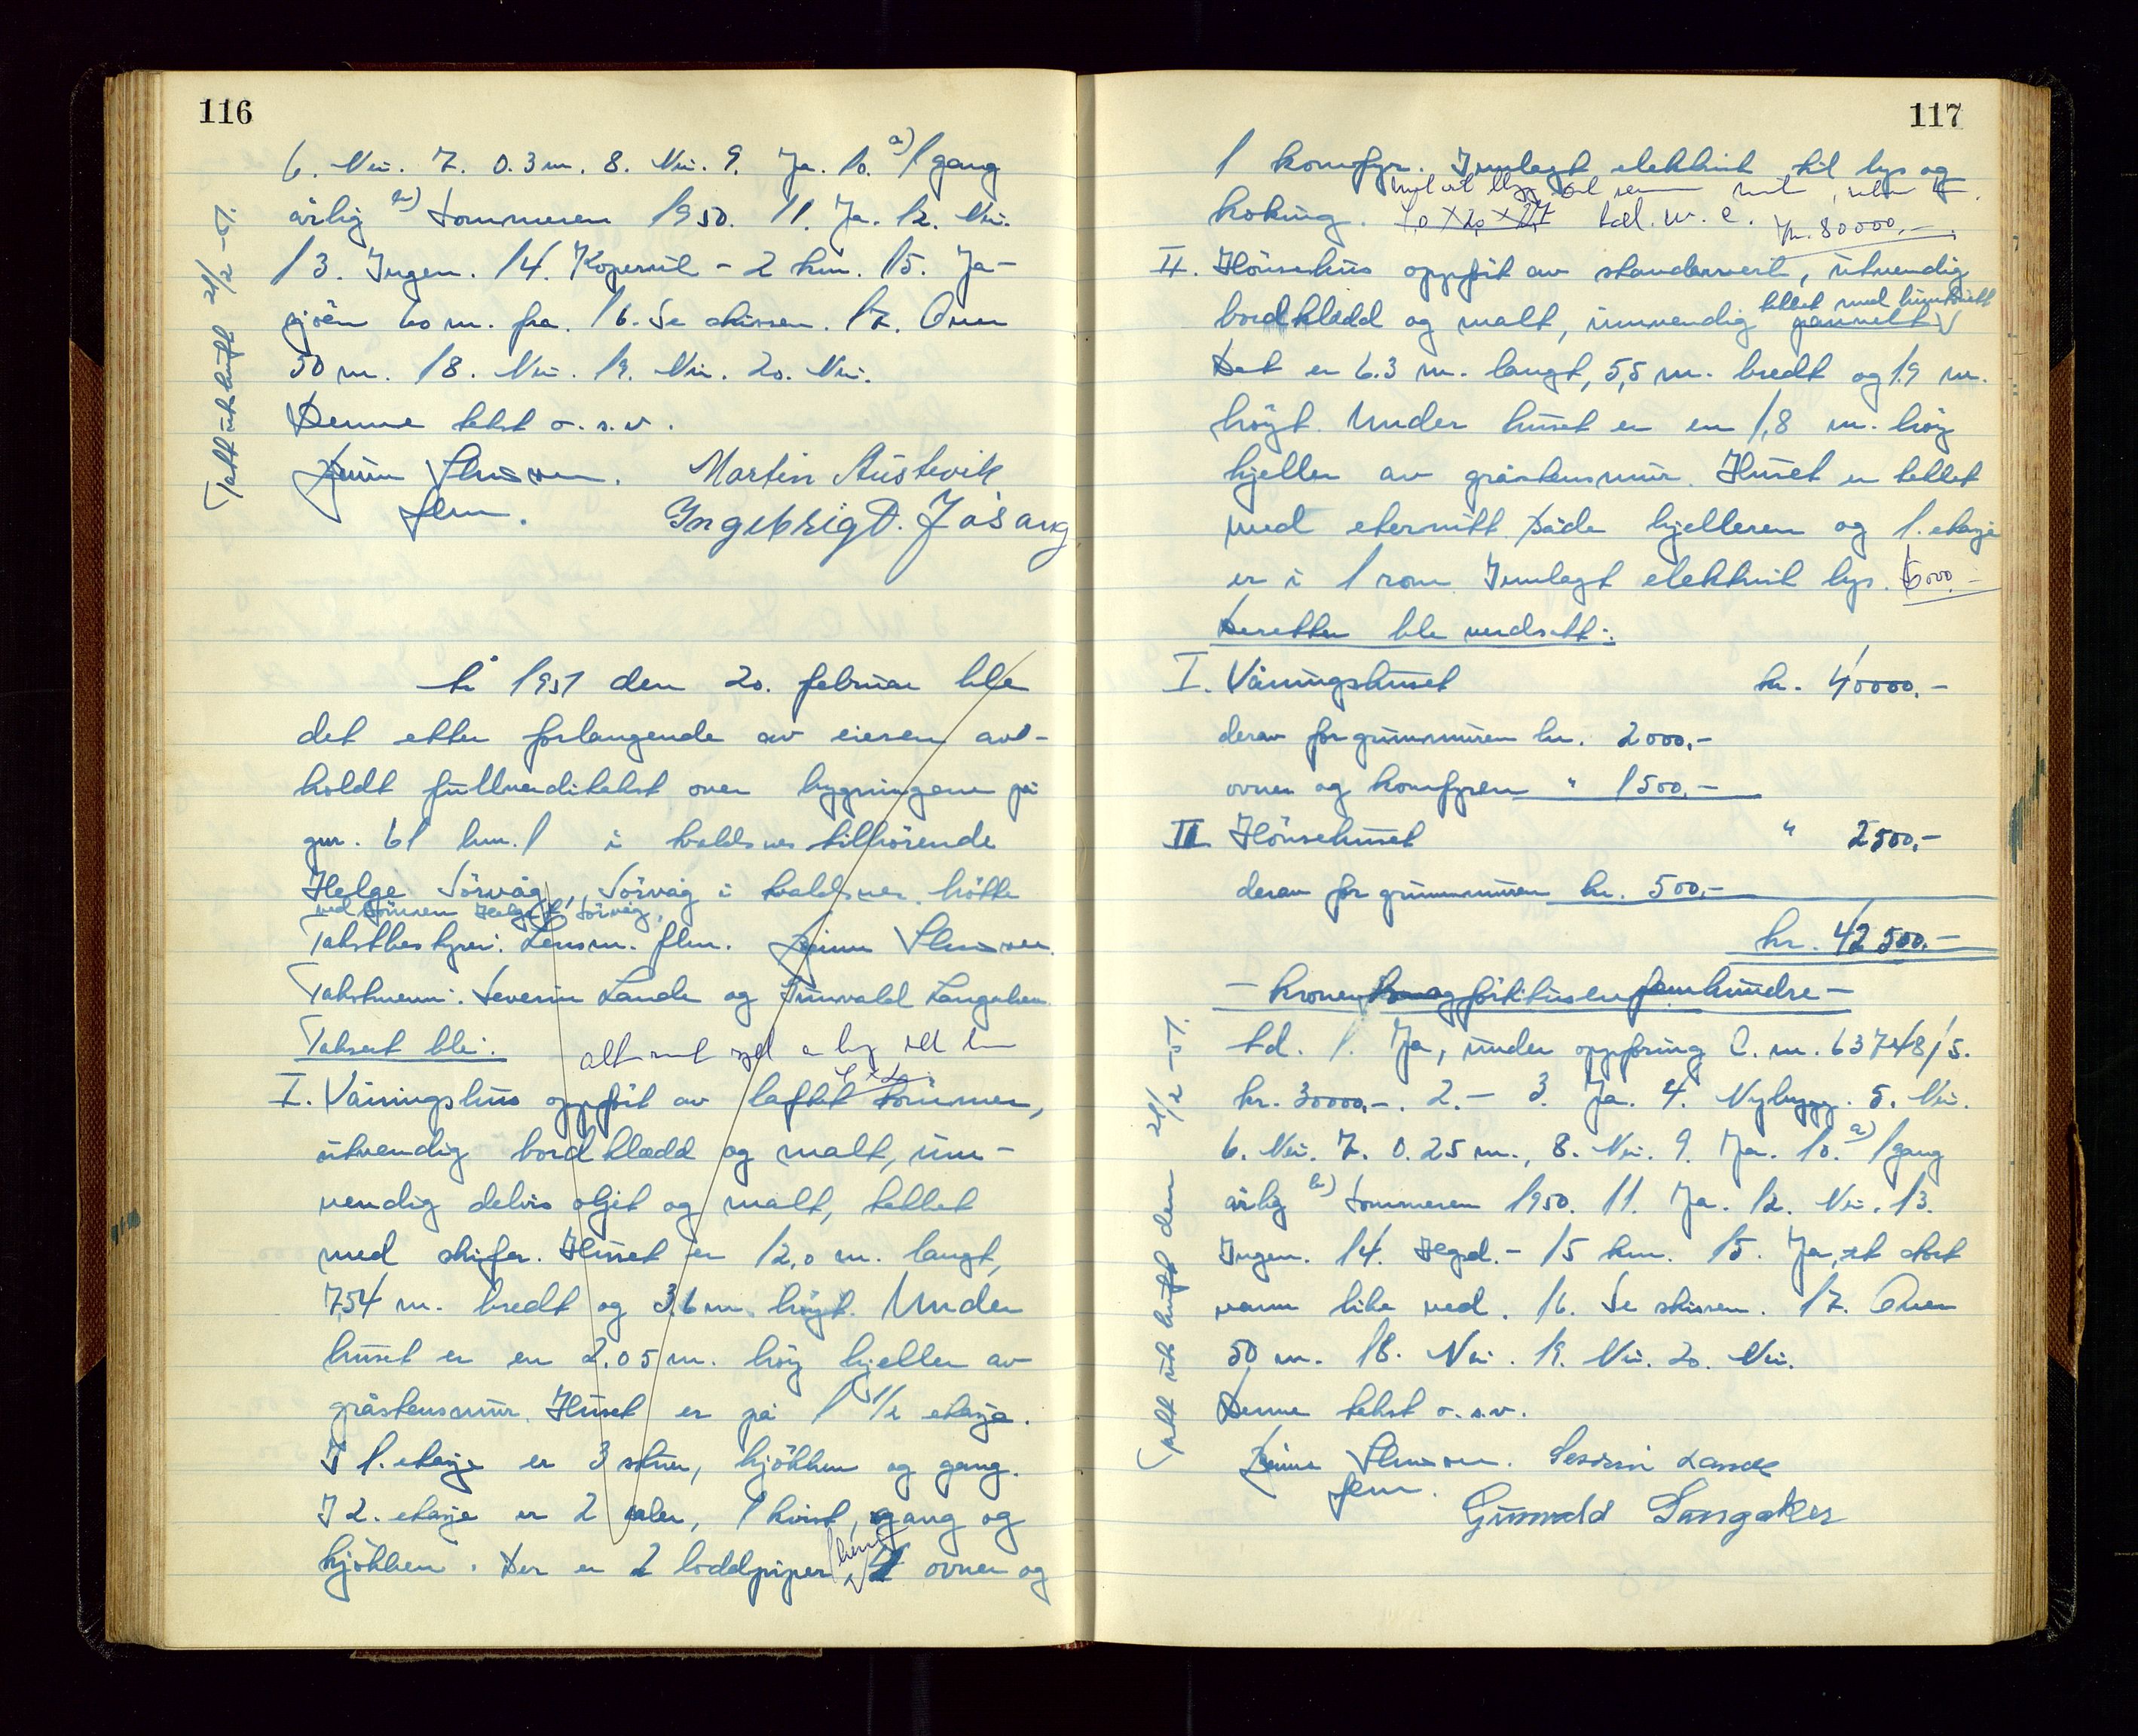 116
6. Nei. 7. 0.3 m. 8. Nei. 9. Ja. 10. a) 1 gang
årlig b) Sommeren 1950. 11. Ja. 12. Nei.
13. Ingen. 14. Kopervik - 2 km. 15. Ja -
sjøen 60 m. fra. 16. Se skissen. 17. Over
50 m. 18. Nei. 19. Nei. 20. Nei.
Denne takst o.s.v.
Martin Austevik
flm. Ingebrigt. Jøsang
Tatt utskrift 21/2-51.
År 1951 den 20. februar ble
det etter forlangende av eieren av-
holdt fullverditakst over bygningene på
gnr. 61 bnr. 1 i Avaldsnes tilhørende
Helge Sørvåg, Sørvåg i Avaldsnes. Møtte
ved sønnen Helge Sørvåg.
Takstbestyrer: Lensm. flm.
Takstmenn: Severin Lande og Gunvald Langaker
Taksert ble:
I. Våningshus oppført av laftet tømmer,
utvendig bordkledd og malt, inn-
vendig delvis oljet og malt, tekket
med skifer. Huset er 12,0 m. langt,
7,54 m. bredt og 3,6 m. høyt. Under
huset er en 2.05 m. høy kjeller av
gråstensmur. Huset er på 1 1/2 etasje.
I 1. etasje er 3 stuer, kjøkken og gang.
I 2. etasje er 2 saler, 1 kvist, gang og
kjøkken. Der er 2 loddpiper, ovner og
117
1 komfyr. Innlagt elektrisk til lys og
koking. kr. 80000,-
II. Hønsehus oppført av standerverk, utvendig
bordkledd og malt, innvendig panelt
Det er 6.3 m. langt, 5,5 m. bredt og 1.9 m.
høyt. Under huset er en 1,8 m. høy
kjeller av gråstensmur. Huset er tekket
med eternitt. Både kjelleren og 1. etasje
er i 1 rom. Innlagt elektrisk lys. 6000.-
Deretter ble verdsatt:
I. Våningshuset kr. 40000.-
derav for grunnmuren kr. 2000,-
ovner og komfyren " 1500,-
II Hønsehuset " 2500,-
derav for grunnmuren kr. 500,-
kr. 42500.-
- kroner førtitusen femhundre -
td. 1. Ja, under oppføring C. m. 63748/5.
kr. 30000,-. 2. - 3. Ja. 4. Nybygg. 5. Nei.
6. Nei. 7. 0.25 m., 8. Nei. 9. Ja. 10. a) 1 gang
årlig b) Sommeren 1950. 11. Ja. 12. Nei. 13.
Ingen. 14. Hgsd. - 15 km. 15. Ja, et stort
vann like ved. 16. Se skissen. 17. Over
50 m. 18. Nei. 19. Nei. 20. Nei.
Denne takst o.s.v.
Severin Lande
flm.
Gunvald Langaker
Tatt utskrift den 21/2-51.